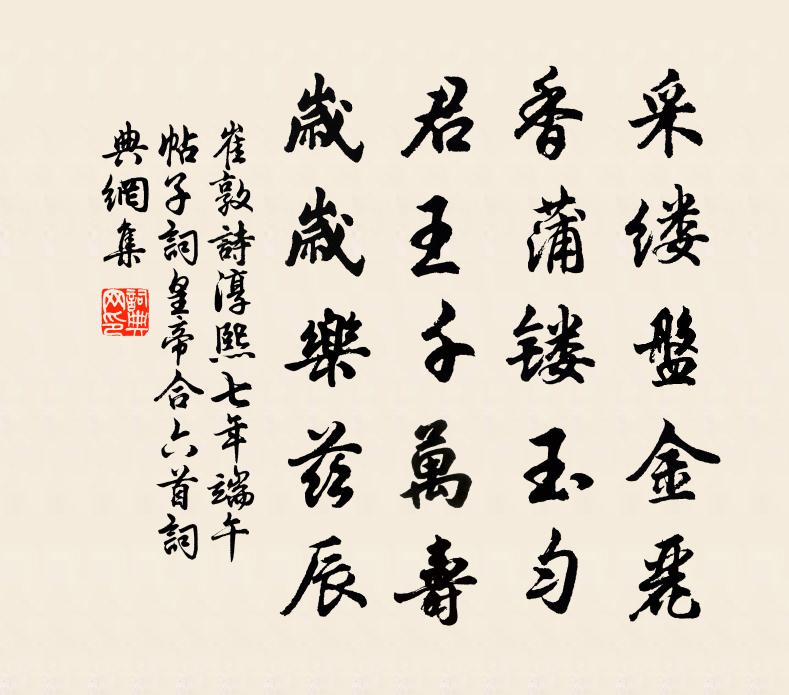 采缕盤金麗
香蒲镂玉勻
君王千萬壽
歲歲樂茲辰
崔敦詩淳熙七年端午
帖子詞皇帝合六首詞
典網集
詞典網印